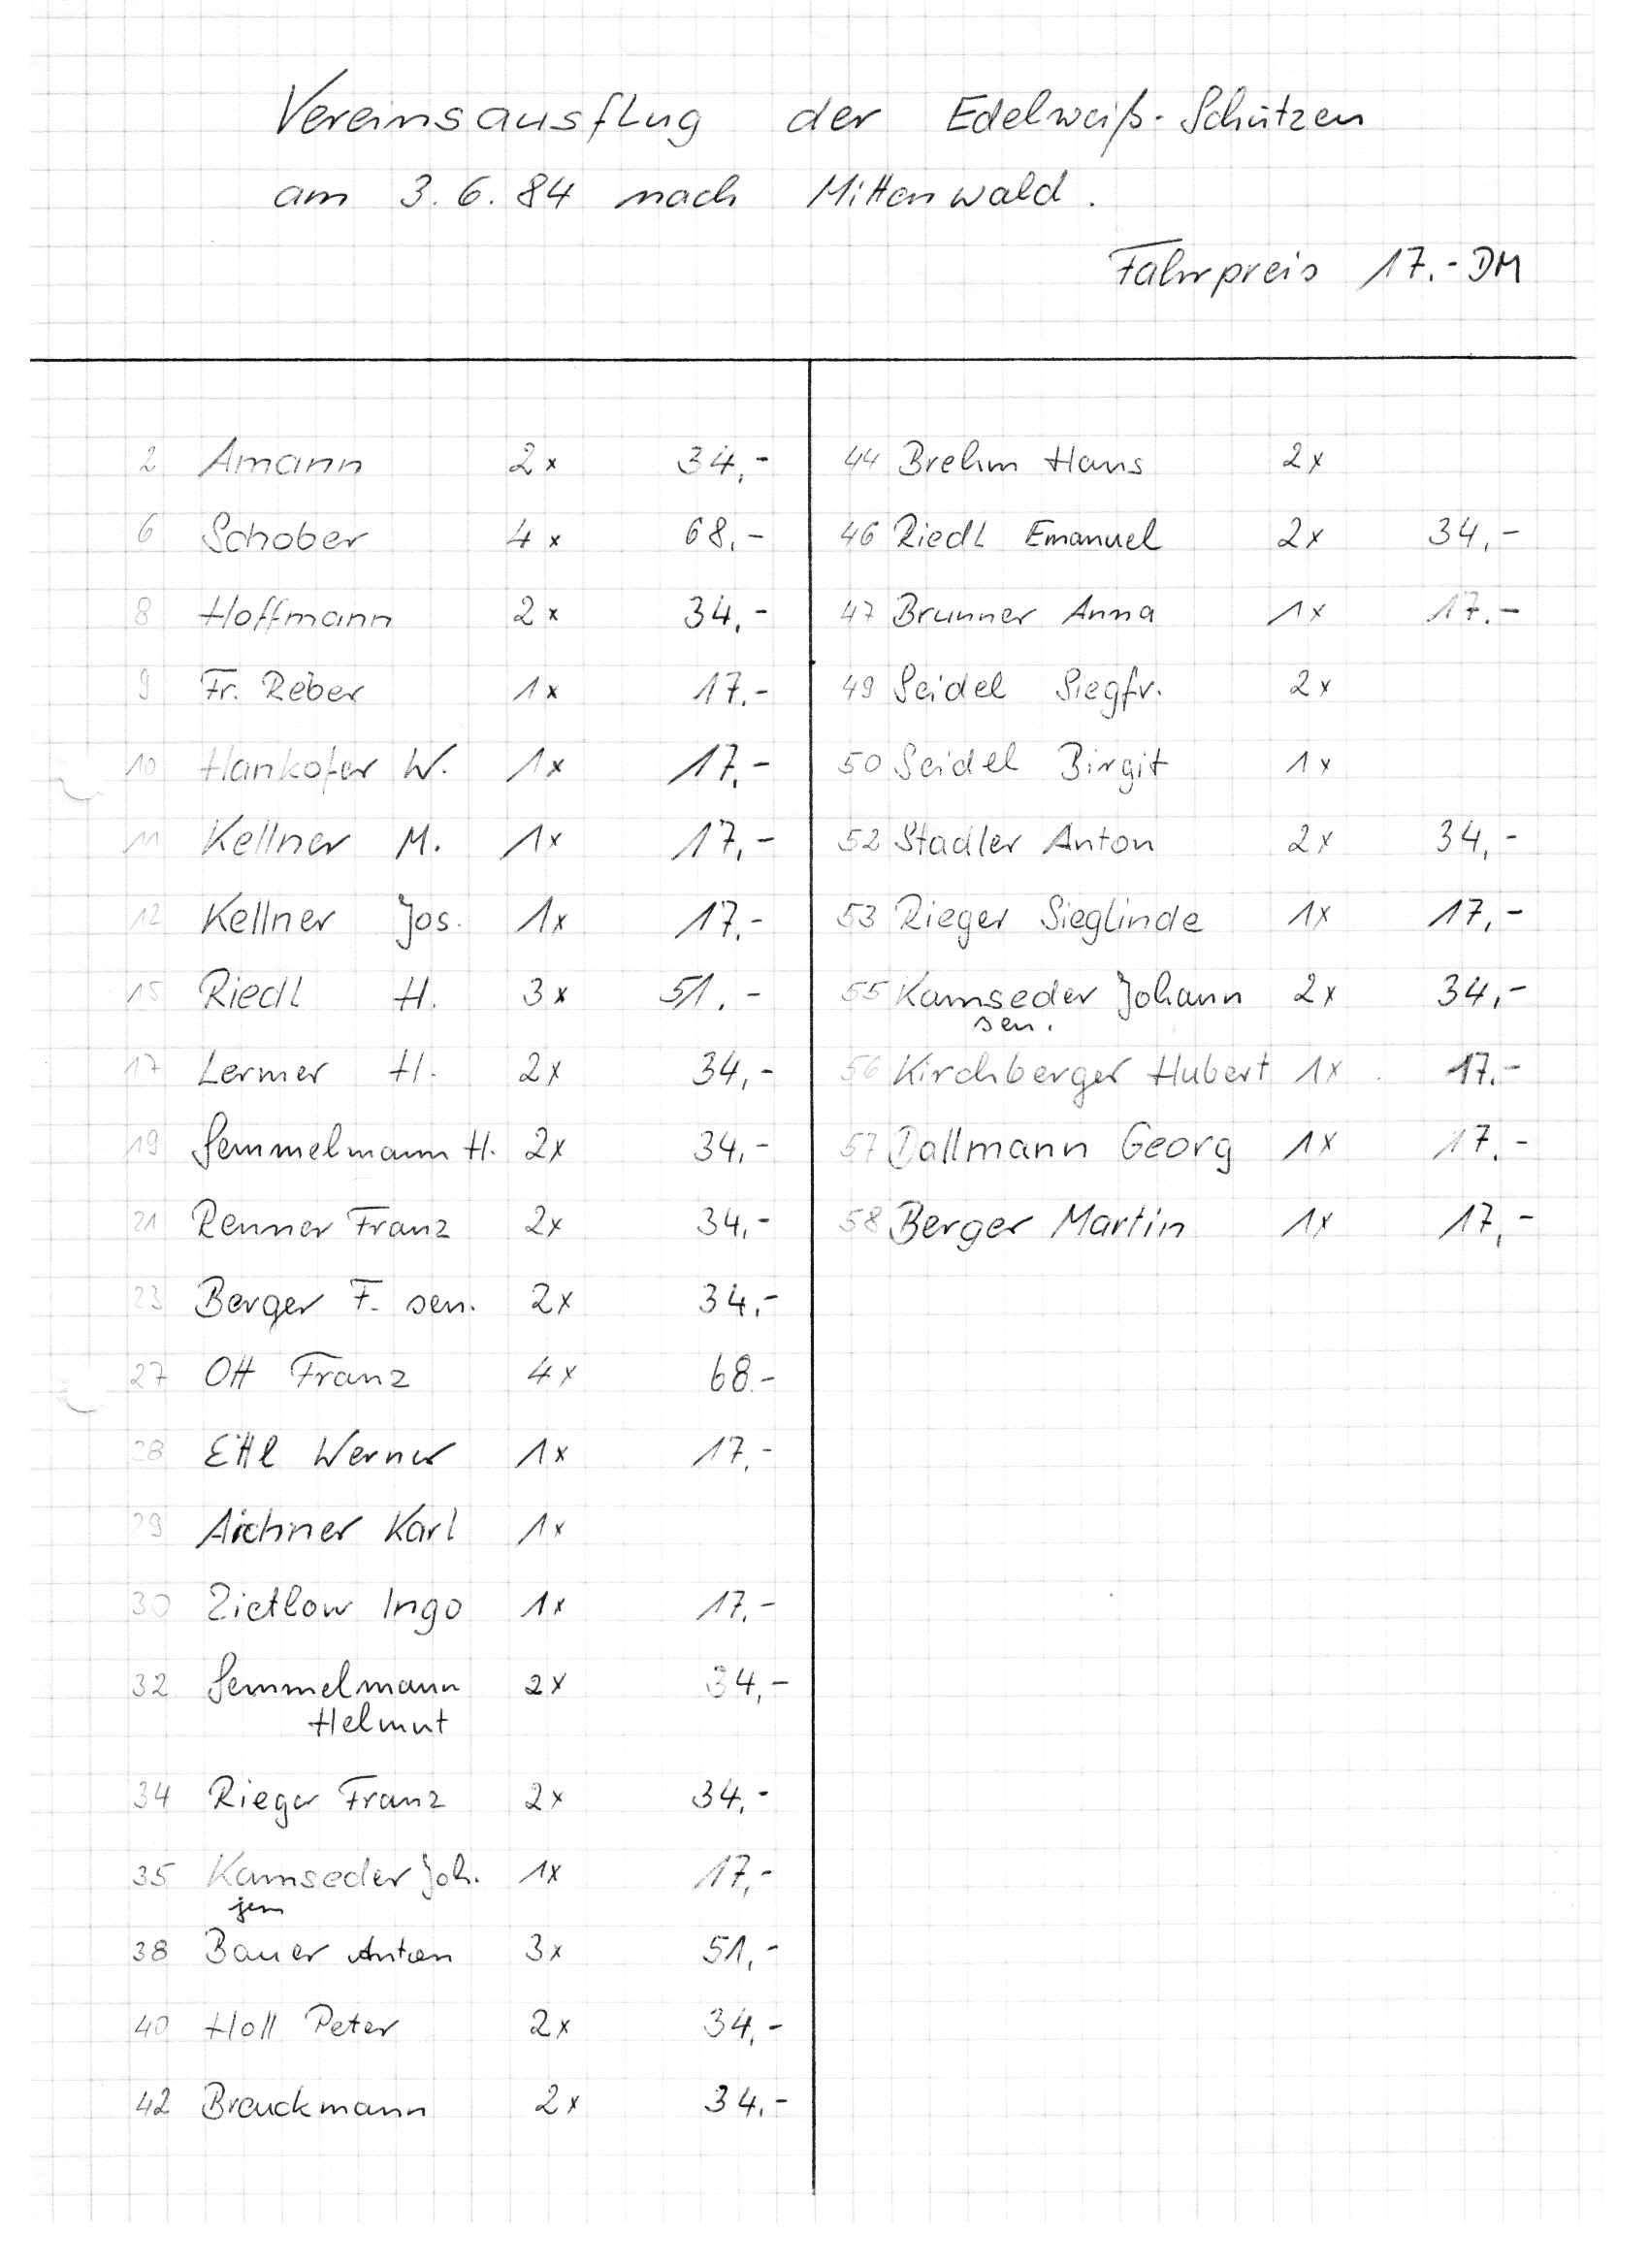 Vereinsausflug der Edelweiß-Schützen
am 3.6.84 nach Mittenwald.
Fahrpreis 17.- DM
2 Amann 2x 34,-
6 Schober 4x 68,-
8 Hoffmann 2x 34,-
9 Fr. Reber 1x 17.-
10 Hankofer W. 1x 17,-
11 Kellner M. 1x 17,-
12 Kellner Jos. 1x 17.-
15 Riedl H. 3x 51.-
17 Lermer H. 2x 34,-
19 Semmelmann H. 2x 34,-
21 Renner Franz 2x 34,-
23 Berger F. sen. 2x 34,-
27 Ott Franz 4x 68.-
28 Ettl Werner 1x 17,-
29 Aichner Karl 1x
30 Zietlow Ingo 1x 17.-
32 Semmelmann 2x 34,-
Helmut
34 Rieger Franz 2x 34,-
35 Kamseder Joh. 1x 17,-
jun
38 Bauer Anton 3x 51,-
40 Holl Peter 2x 34,-
42 Brauckmann 2x 34,-
44 Brehm Hans 2x
46 Riedl Emanuel 2x 34,-
47 Brunner Anna 1x 17.-
49 Seidel Siegfr. 2x
50 Seidel Birgit 1x
52 Stadler Anton 2x 34,-
53 Rieger Sieglinde 1x 17,-
55 Kamseder Johann 2x 34,-
sen.
56 Kirchberger Hubert 1x 17.-
57 Dallmann Georg 1x 17.-
58 Berger Martin 1x 17,-